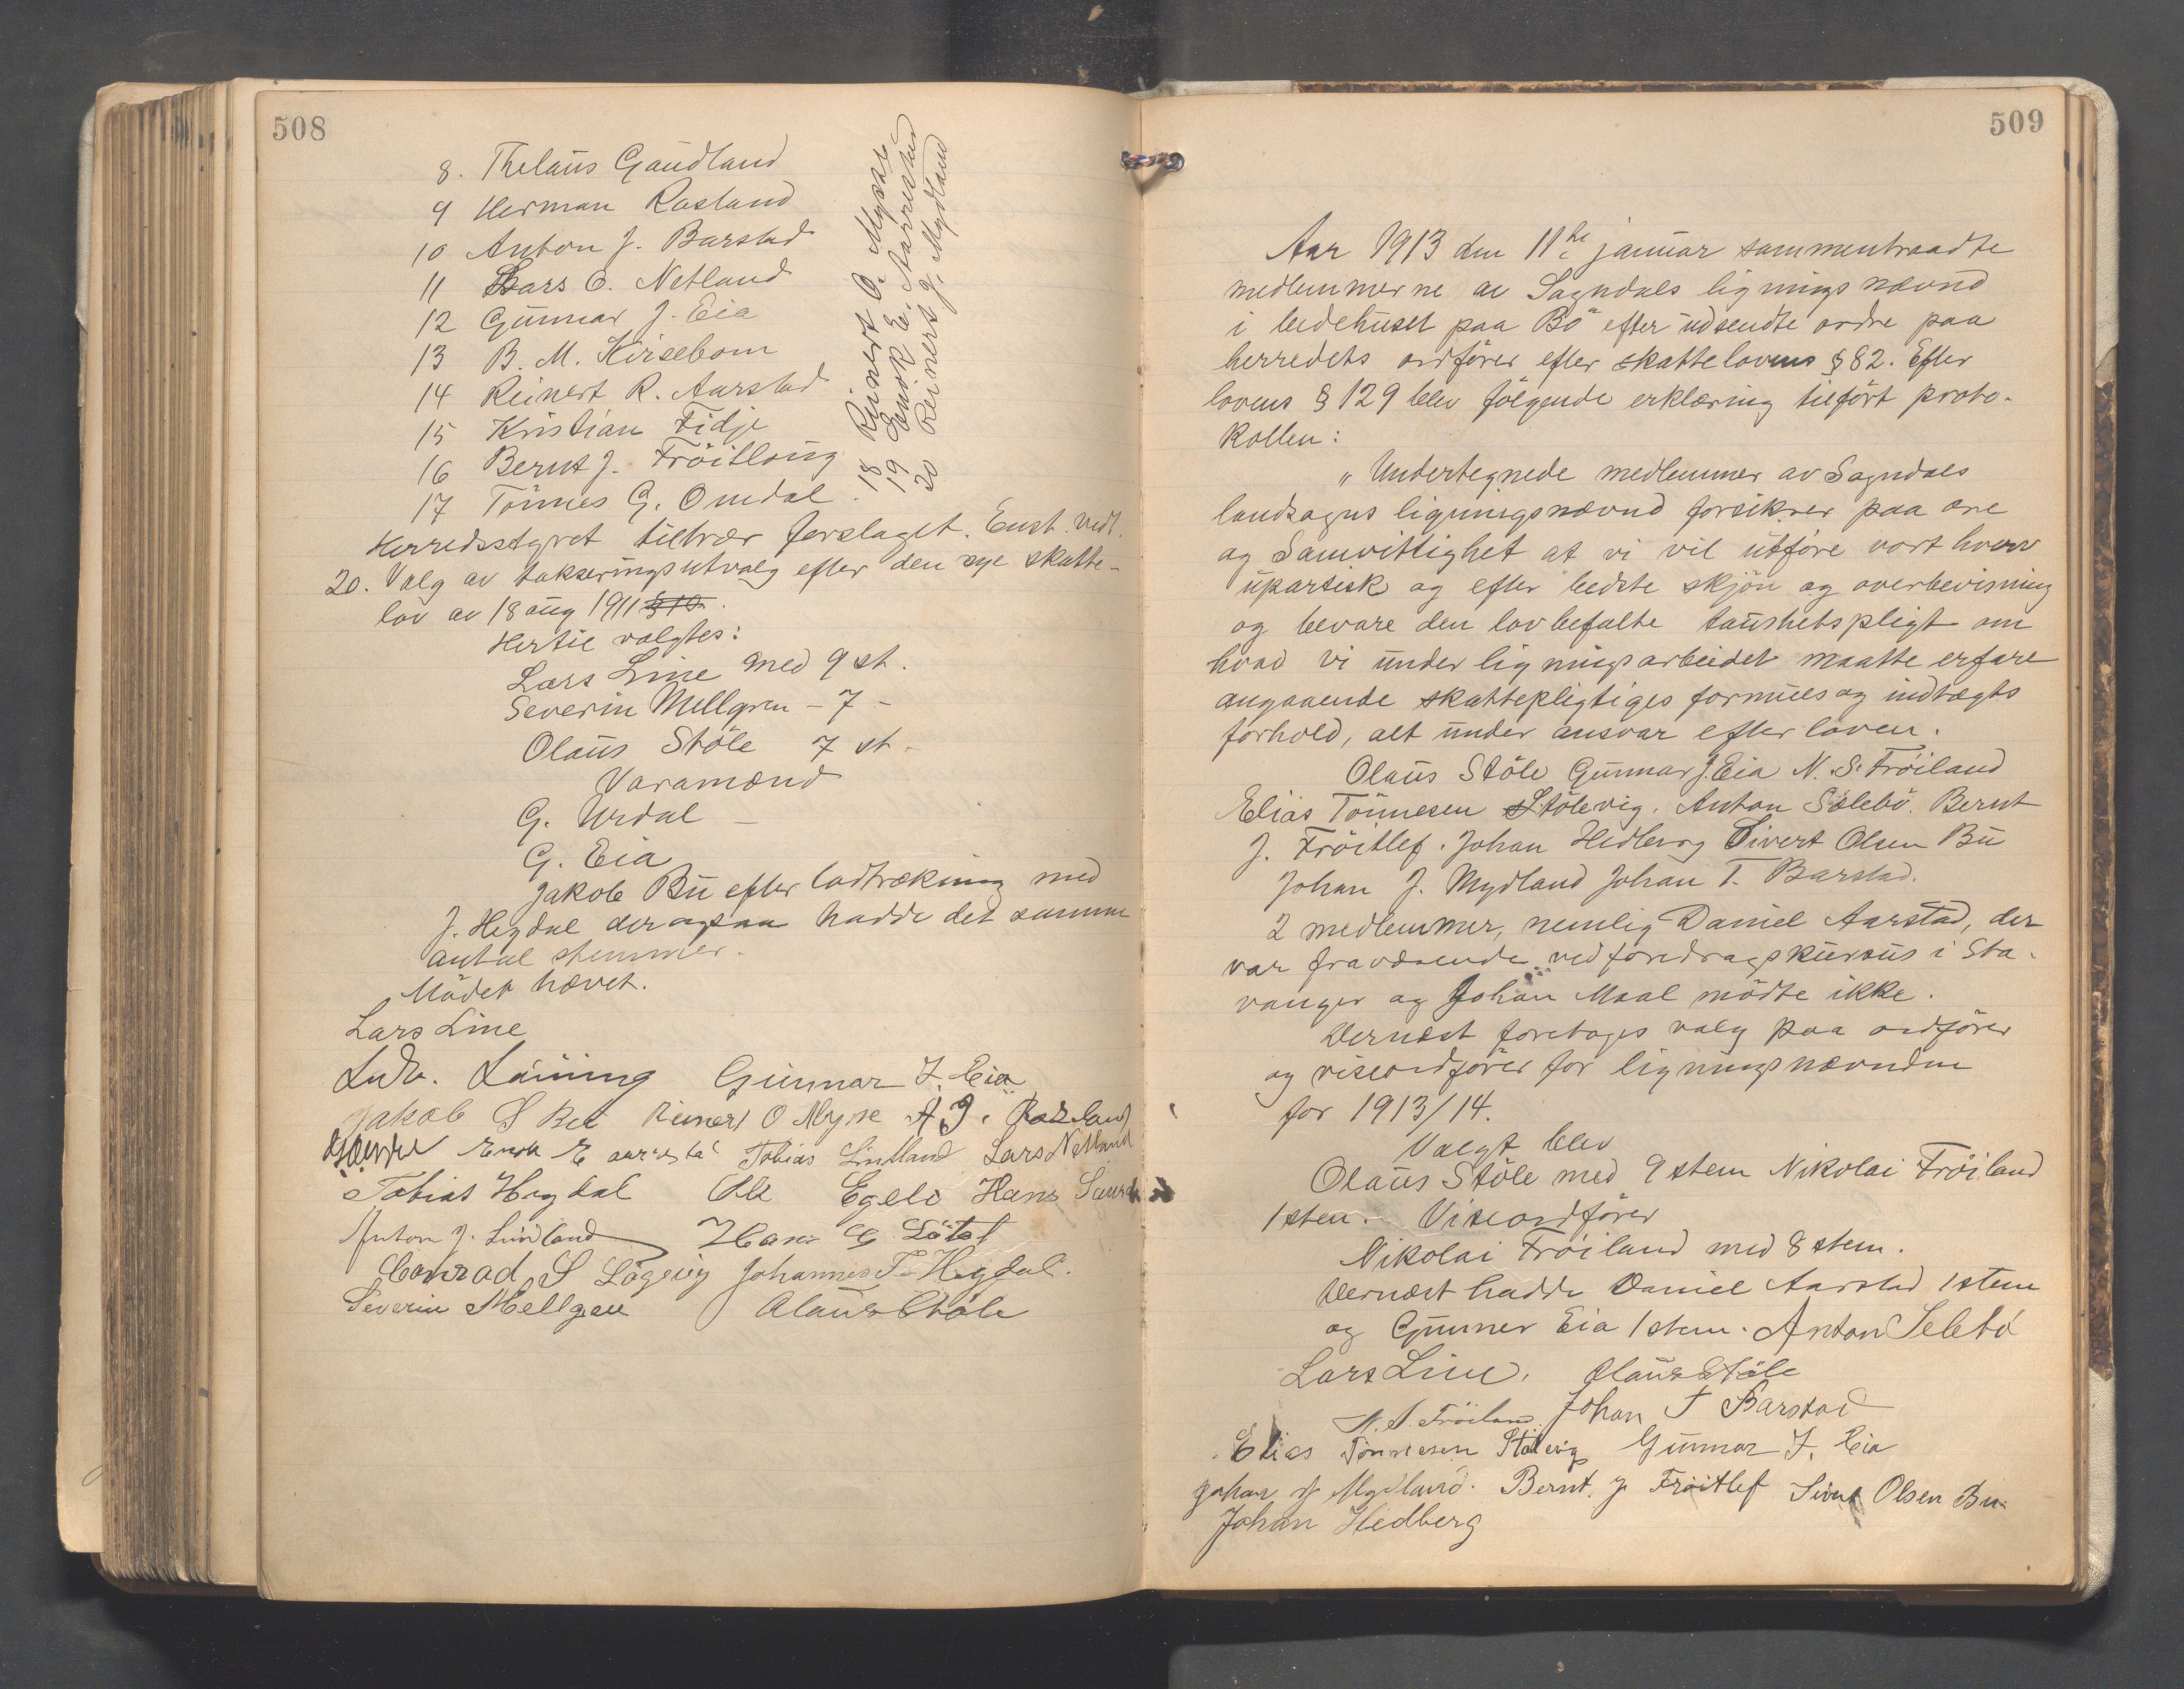 508
8. Thelaus Gaudland
9 Herman Rosland
10 Anton J. Barstad
11 Lars O. Netland
12 Gunnar J. Eia
13 B. M. Kirsebom
14 Reinert R. Aarstad
15 Kristian Fidje
16 Bernt J. Fröitlaug
17 Tönnes G. Omdal.
18 Reinert O. Mysse
19 Enok E. Aarrestad
20 Reinert G. Mydland
Herredsstyret tiltrær forslaget. Enst. vedt.
20. Valg av takseringsutvalg efter den nye skatte-
lov av 18 aug 1911 § 10.
Hertil valgtes:
Lars Line med 9 st.
Severin Mellgren - 7 -
Olaus Stöle 7 st.
Varamænd
G. Urdal -
G. Eia
Jakob Bu efter lodtrækning med
J. Hegdal der ogsaa hadde det samme
antal stemmer.
Mödet hævet.
Lars Line
Ludv. Lauing Gunnar J. Eia
Jakob S Bu Reinert O Mysse A J. Rosland
Enok E aarrestad Tobias Lindland Lars Netland
Tobias Hegdal Ole Egelo Hans
Anton J. Lindland Hans G
Conrad S Lögevig Johannes T Hegdal.
Severin Mellgren Olaus Stöle
509
Aar 1913 den 11te januar sammentraadte
medlemmerne av Sogndals ligningsnævnd
i bedehuset paa Bö efter udsendte ordre paa
herredets ordförer efter skattelovens § 82. Efter
lovens § 129 blev fölgende erklæring tilfört proto-
kollen:
"Undertegnede medlemmer av Sogndals
landsogns ligningsnævnd forsikrer paa ære
og Samvittighet at vi vil utföre vort hverv
upartisk og efter bedste skjön og overbevisning
og bevare den lovbefalte taushetspligt om
hvad vi under ligningsarbeidet maatte erfare
angaaende skattepligtiges formues og indtægts
forhold, alt under ansvar efter loven.
Olaus Stöle Gunnar J. Eia N. S. Fröiland
Elias Tönnesen Stölevig. Anton Sælebö. Bernt
J. Fröitlef. Johan Hedberg Sivert Olsen Bu
Johan J. Mydland Johan T. Barstad.
2 medlemmer, nemlig Daniel Aarstad, der
var fraværende ved foredragskursus i Sta-
vanger og Johan Maal mödte ikke.
Dernæst foretoges valg paa ordförer
og viseordförer for ligningsnævnden
for 1913/14.
Valgt blev
Olaus Stöle med 9 stem Nikolai Fröiland
1 stem. Viseordförer
Nikolai Fröiland med 8 stem.
Dernæst hadde Daniel Aarstad 1 stem
og Gunner Eia 1 stem. Anton Selebö
Lars Line. Olaus Stöle
N. S. Fröiland. Johan T Barstad
Elias Tönnesen Stölevig Gunnar J. Eia
Johan J Mydland. Bernt. J Fröitlef Sivert Olsen Bu.
Johan Hedberg